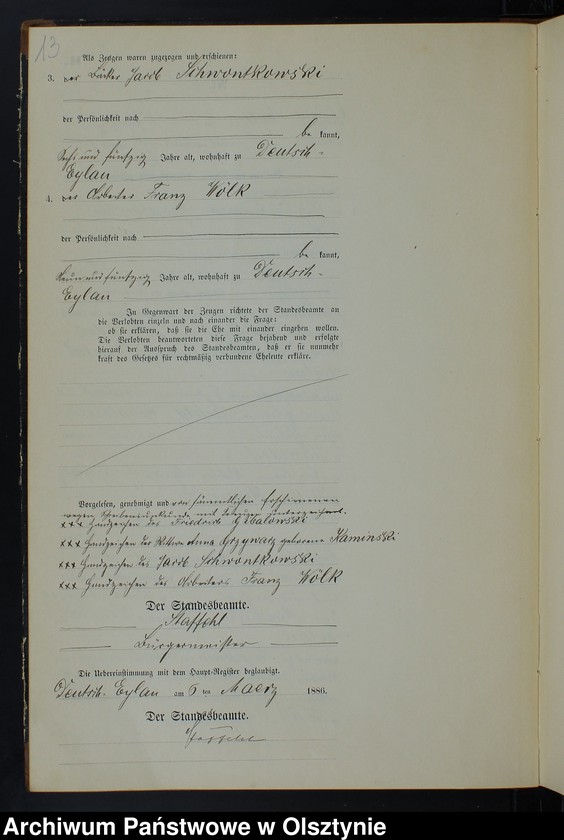 13
Als Zeugen waren zugezogen und erschienen:
3. der Bäcker Jacob Schwontkowski
der Persönlichkeit nach
be kannt,
Sechs und fünfzig Jahre alt, wohnhaft zu Deutsch-
Eylau
4. der Arbeiter Franz Wölk
der Persönlichkeit nach
be kannt,
Neun und fünfzig Jahre alt, wohnhaft zu Deutsch-
Eylau
In Gegenwart der Zeugen richtete der Standesbeamte an
die Verlobten einzeln und nach einander die Frage:
ob sie erklären, daß sie die Ehe mit einander eingehen wollen.
Die Verlobten beantworteten diese Frage bejahend und erfolgte
hierauf der Ausspruch des Standesbeamten, daß er sie nunmehr
kraft des Gesetzes für rechtmäßig verbundene Eheleute erkläre.
Vorgelesen, genehmigt und von sämmtlichen Erschienenen
wegen Schreibensunkunde mit Kreuzen unterzeichnet.
xxx Handzeichen des Friedrich
xxx Handzeichen der Wittwe Anna Grzywacz geborene Kaminski
xxx Handzeichen des Jacob Schwontkowski
xxx Handzeichen des Arbeiters Franz Wölk
Der Standesbeamte.
Bürgermeister
Die Uebereinstimmung mit dem Haupt-Register beglaubigt.
Deutsch-Eylau am 6 ten Maerz 1886.
Der Standesbeamte.
Archiwum Państwowe w Olsztynie